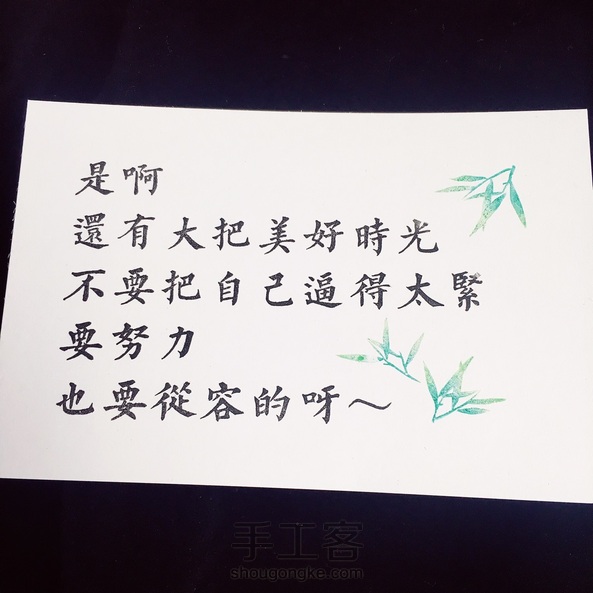 是啊
還有大把美好時光
不要把自己逼得太緊
要努力
也要從容的呀～
手工客
shougongke.com